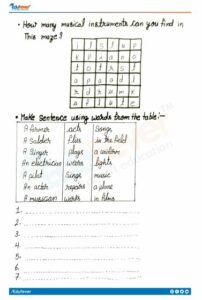 Tutever
• How many musical instruments can you find in
This maze?
i t s t u p
k p i a n o
t o t r s
a p a d l
r d r u m x
a f l u t e
• Make Sentence using words from the table:-
A farmer acts Songs
A Soldier flies in the field
A Singer plays a uniform
An electrician wears lights
A pilot Sings music
An actor repairs a plane
A musician works in films
1.
2.
3.
4.
5.
6.
7.